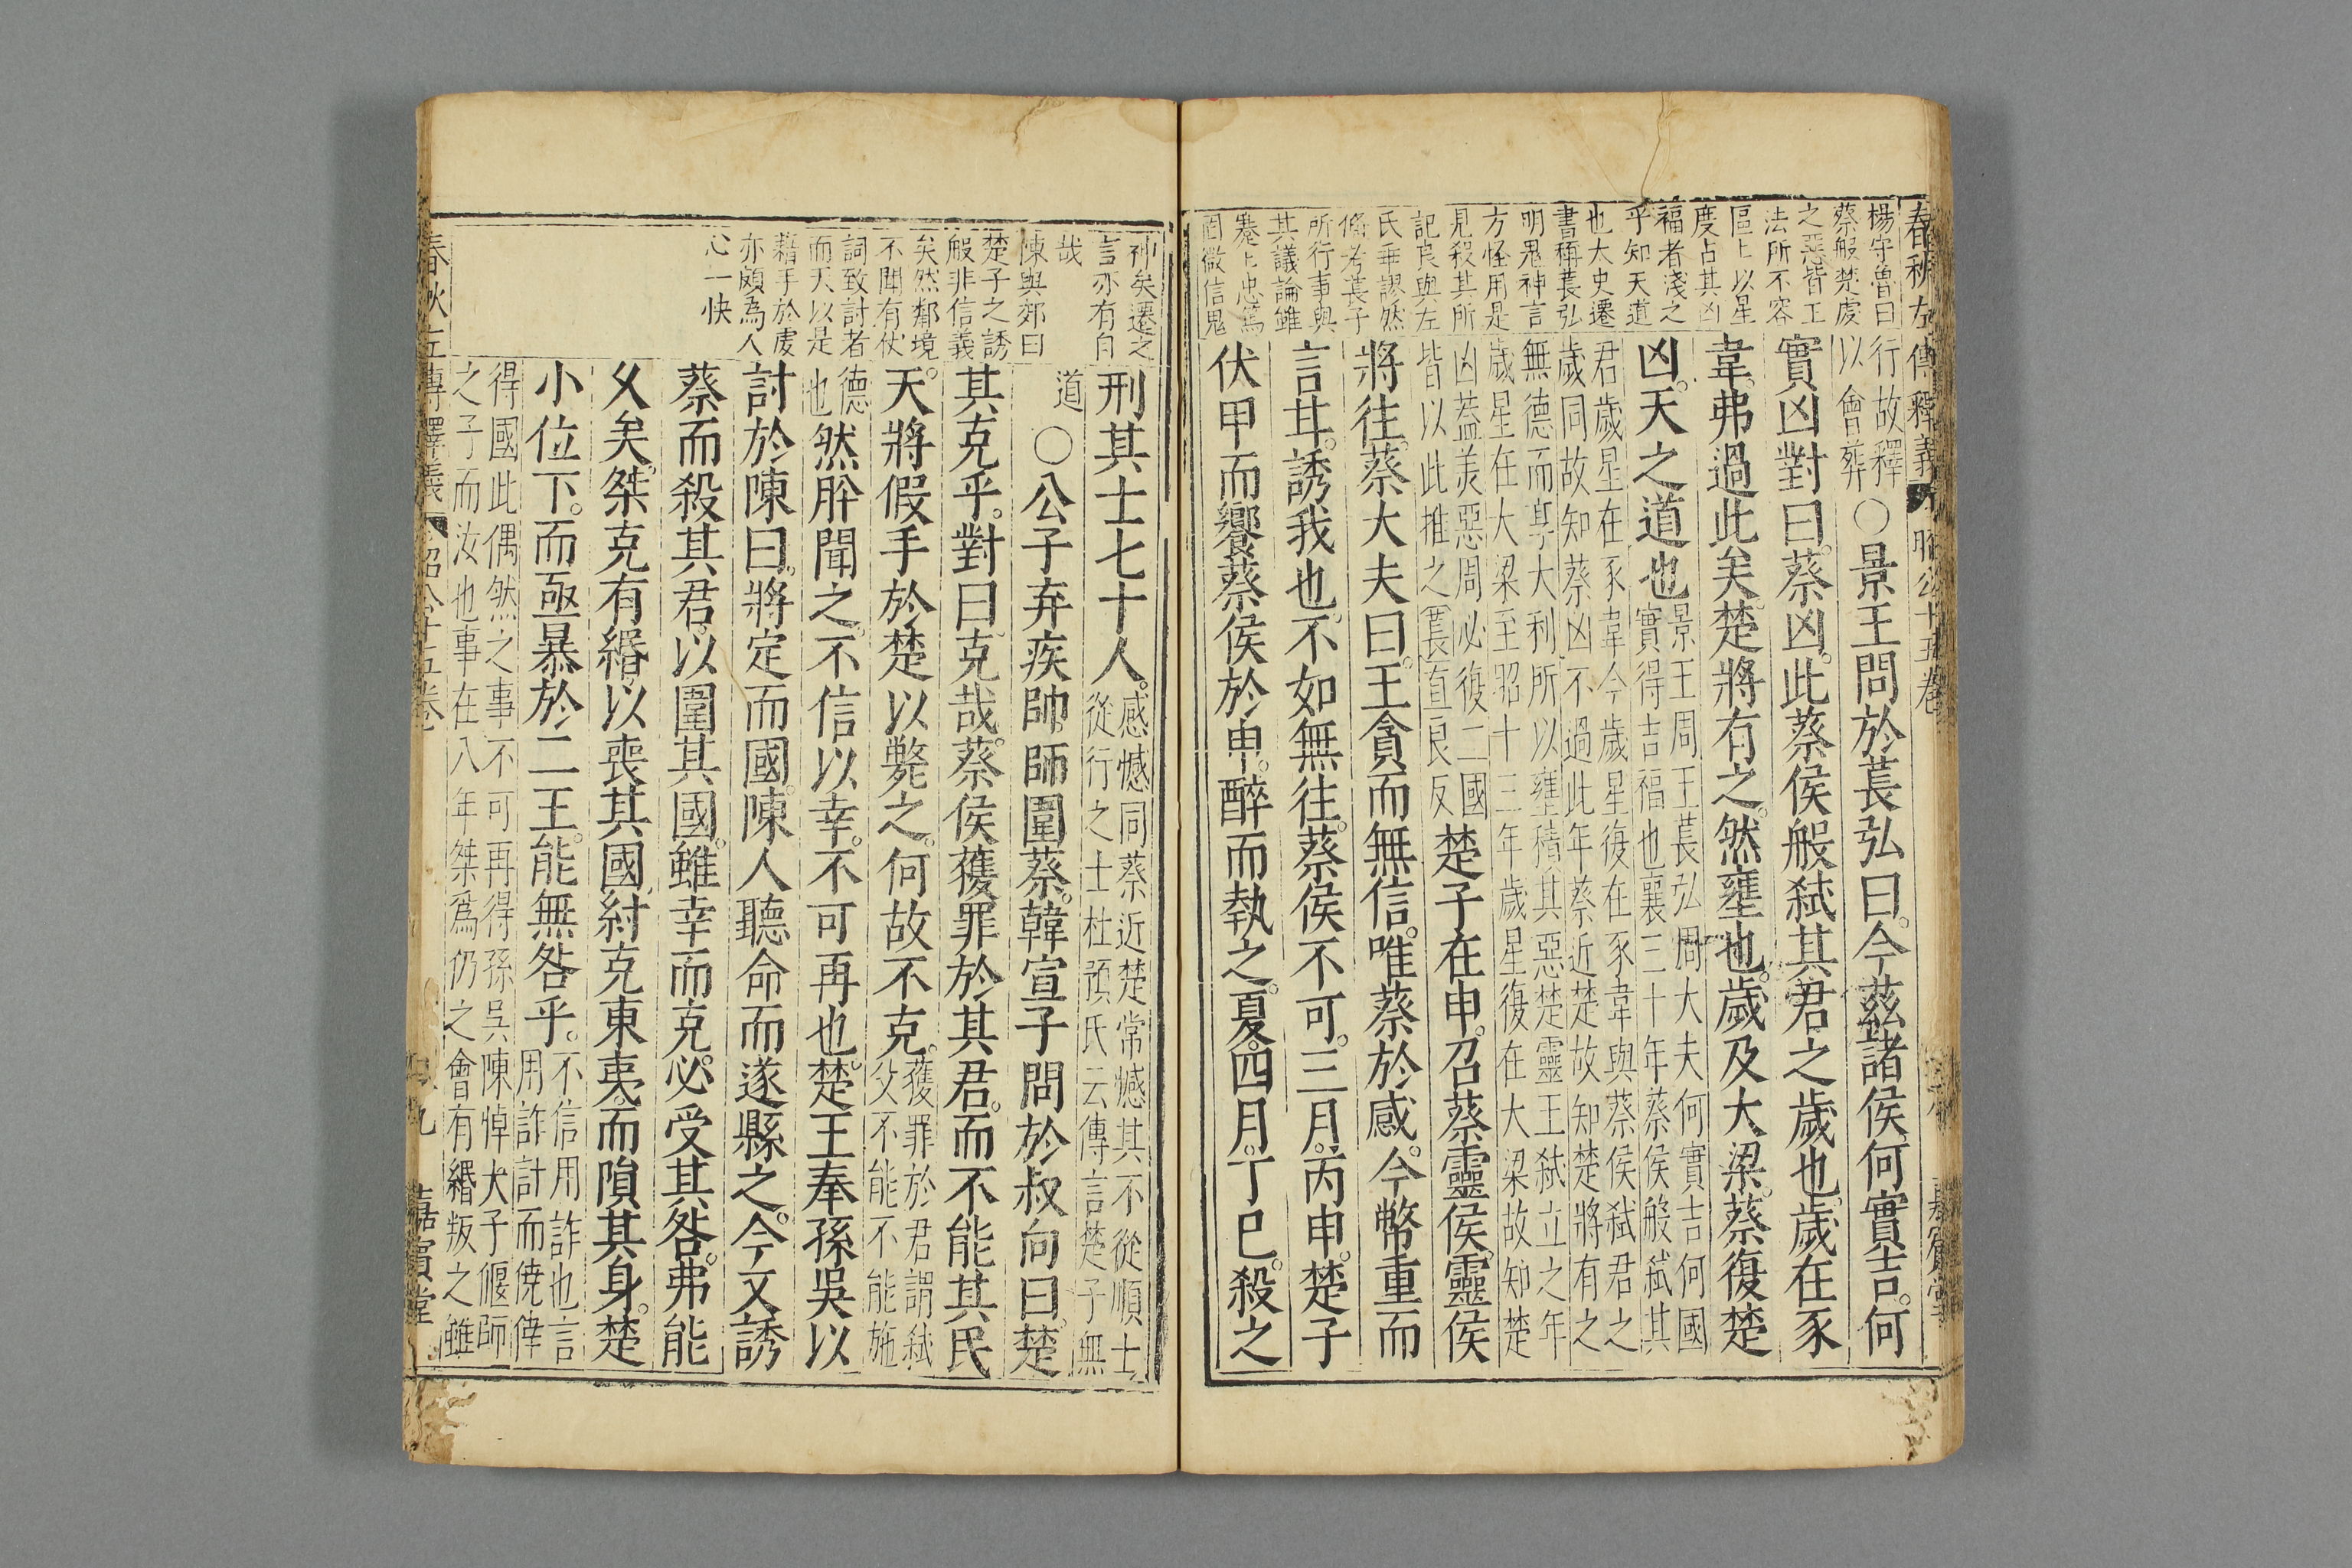 春秋左傳釋義 昭公十五卷
楊守魯曰
蔡般楚虔
之惡皆王
法所不容
區上以星
度占其凶
福者淺之
乎知天道
也大史遷
書稱萇弘
明鬼神言
方怪用是
見殺其所
記良與左
氏乖謬然
脩考萇子
所行事與
其議論雖
蹇上忠篤
固微信鬼
行故釋
以會葬
○景王問於萇弘曰。今茲諸侯何實吉。何
實凶對曰。蔡凶。此蔡侯般弑其君之歲也。歲在豕
韋。弗過此矣。楚將有之。然壅也。歲及大梁。蔡復楚
凶。天之道也
景王周王萇弘周大夫何實吉何國
實得吉福也襄三十年蔡侯般弑其
君歲星在豕韋今歲星復在豕韋與蔡侯弑君之
歲同故知蔡凶不過此年蔡近楚故知楚將有之
無德而享大利所以壅積其惡楚靈王弑立之年
歲星在大梁至昭十三年歲星復在大梁故知楚
凶蓋美惡周必復二國
皆以此推之萇直良反
楚子在申。召蔡靈侯。靈侯
將往。蔡大夫曰。王貪而無信。唯蔡於感。今幣重而
言甘。誘我也。不如無往。蔡侯不可。三月。丙申。楚子
伏甲而饗蔡侯於申。醉而執之。夏。四月。丁巳。殺之
神矣遷之
言亦有自
哉
陳與郊曰
楚子之誘
般非信義
矣然鄰境
不聞有仗
詞致討者
而天以是
藉手於虔
亦頗爲人
心一快
刑其士七十人。
感憾同蔡近楚常憾其不從順士
從行之士杜預氏云傳言楚子無
道
○公子弃疾帥師圍蔡。韓宣子問於叔向曰。楚
其克乎。對曰。克哉。蔡侯獲罪於其君。而不能其民
天。將假手於楚以斃之。何故不克。
獲罪於君謂弑
父不能不能施
德
也
然肸聞之。不信以幸。不可再也。楚王奉孫吳以
討於陳曰。將定而國。陳人聽命而遂縣之。今又誘
蔡而殺其君。以圍其國。雖幸而克。必受其咎。弗能
久矣。桀克有緡以喪其國。紂克東夷。而隕其身。楚
小位下。而亟暴於二王。能無咎乎。
不信用詐也言
用詐計而僥倖
得國此偶然之事不可再得孫吳陳悼大子偃師
之子而汝也事在八年桀爲仍之會有緡叛之雖
春秋左傳釋義 昭公十五卷 九 嘉賓堂